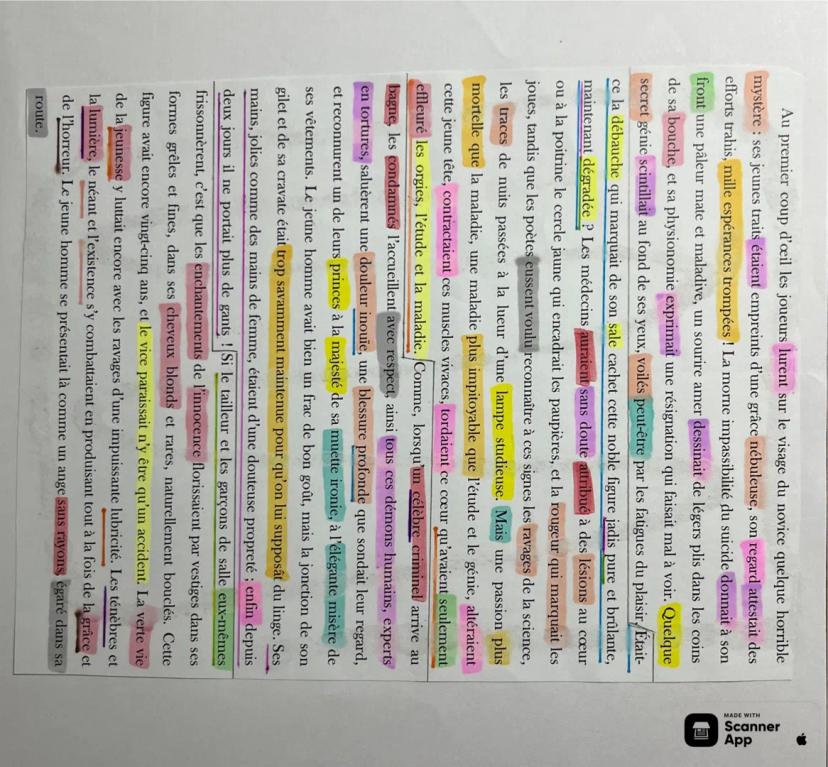 Au premier coup d'œil les joueurs lurent sur le visage du novice quelque horrible
mystère : ses jeunes traits étaient empreints d'une grâce nébuleuse, son regard attestait des
efforts trahis, mille espérances trompées ! La morne impassibilité du suicide donnait à son
front une pâleur mate et maladive, un sourire amer dessinait de légers plis dans les coins
de sa bouche, et sa physionomie exprimait une résignation qui faisait mal à voir. Quelque
secret génie scintillait au fond de ses yeux, voilés peut-être par les fatigues du plaisir. Était-
ce la débauche qui marquait de son sale cachet cette noble figure jadis pure et brûlante,
maintenant dégradée ? Les médecins auraient sans doute attribué à des lésions au cœur
ou à la poitrine le cercle jaune qui encadrait les paupières, et la rougeur qui marquait les
joues, tandis que les poètes eussent voulu reconnaître à ces signes les ravages de la science,
les traces de nuits passées à la lueur d'une lampe studieuse. Mais une passion plus
mortelle que la maladie, une maladie plus impitoyable que l'étude et le génie, altéraient
cette jeune tête, contractaient ces muscles vivaces, tordaient ce cœur qu'avaient seulement
effleuré les orgies, l'étude et la maladie. Comme, lorsqu'un célèbre criminel arrive au
bagne, les condamnés l'accueillent avec respect, ainsi tous ces démons humains, experts
en tortures, saluèrent une douleur inouïe, une blessure profonde que sondait leur regard,
et reconnurent un de leurs princes à la majesté de sa muette ironie, à l'élégante misère de
ses vêtements. Le jeune homme avait bien un frac de bon goût, mais la jonction de son
gilet et de sa cravate était trop savamment maintenue pour qu'on lui supposât du linge. Ses
mains, jolies comme des mains de femme, étaient d'une douteuse propreté ; enfin depuis
deux jours il ne portait plus de gants ! Si le tailleur et les garçons de salle eux-mêmes
frissonnèrent, c'est que les enchantements de l'innocence florissaient par vestiges dans ses
formes grêles et fines, dans ses cheveux blonds et rares, naturellement bouclés. Cette
figure avait encore vingt-cinq ans, et le vice paraissait n'y être qu'un accident. La verte vie
de la jeunesse y luttait encore avec les ravages d'une impuissante lubricité. Les ténèbres et
la lumière, le néant et l'existence s'y combattaient en produisant tout à la fois de la grâce et
de l'horreur. Le jeune homme se présentait là comme un ange sans rayons, égaré dans sa
route.
MADE WITH
Scanner
App